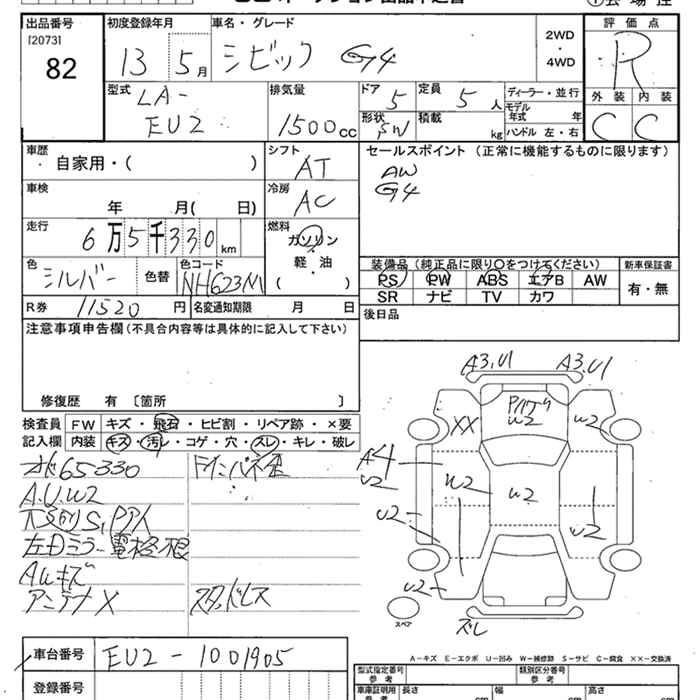 出品番号
[2073]
82
初度登録年月
13 5月
車名・グレード
シビック G4
2WD
・
4WD
評価点
R
外装 内装
C C
型式
LA-
EU2
排気量
1500cc
ドア 5
定員 5人
形状 SW
積載 kg
ディーラー・並行
モデル
年式 年
ハンドル 左・右
車歴
自家用・( )
シフト
AT
セールスポイント (正常に機能するものに限ります)
AW
G4
車検
年 月( 日)
冷房
AC
走行
6万5千330km
燃料
ガソリン
軽・油
( )
色
シルバー
色替
色コード
NH623M
装備品 (純正品に限り○をつけてください)
PS PW ABS エアB AW
SR ナビ TV カワ
新車保証書
有・無
R券 11520円
名変通知期限 月 日
後日品
注意事項申告欄(不具合内容等は具体的に記入して下さい)
修復歴 有 [箇所 ]
検査員
記入欄
FW キズ・飛石・ヒビ割・リペア跡・×要
内装 キズ・汚レ・コゲ・穴・スレ・キレ・破レ
65330
A.U.W2
左Dミラー電格不良
AWキズ
アンテナX
スタッドレス
A3.U1 A3.U1
XX
W2
W2
A4
U2
W2
W2
U2
U2
U2
ズレ
スペア
A－キズ E－エクボ U－凹み W－補修跡 S－サビ C－腐食 ××－交換済
車台番号 EU2-1001905
登録番号
型式指定番号
参考
類別区分番号
参考
車庫証明用
参考
長さ cm 幅 cm 高さ cm